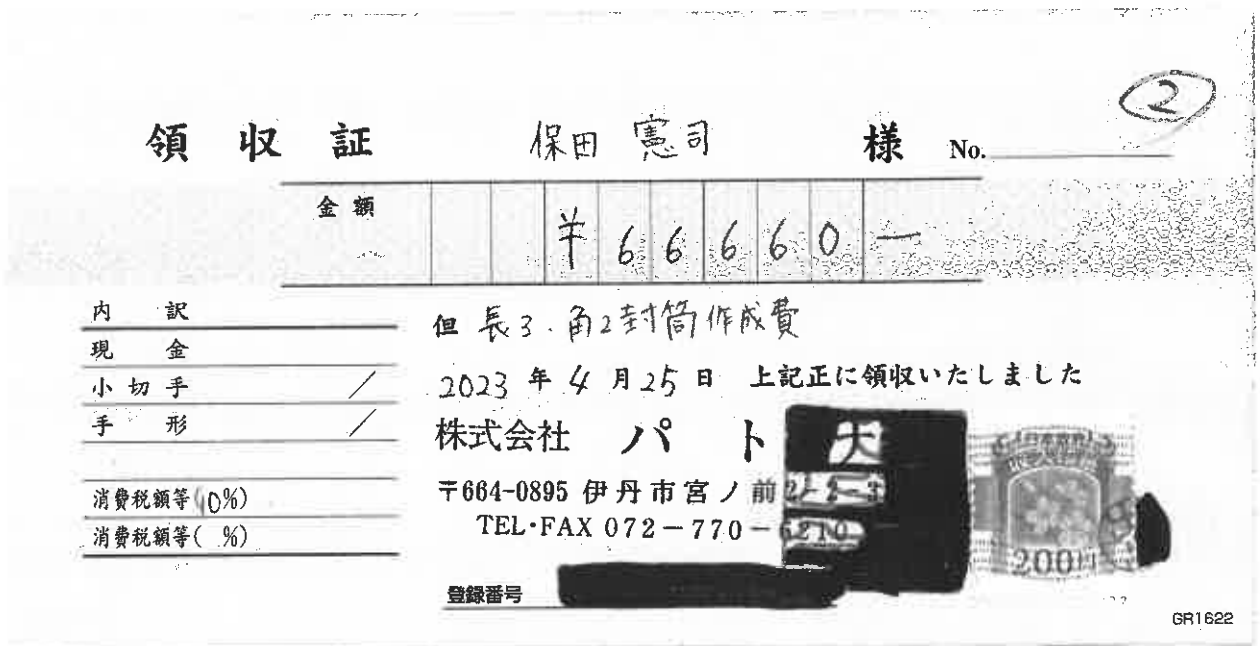 ②
領収証 保田 憲司 様 No.
金額 ¥66660-
内訳
現金
小切手 /
手形 /
消費税額等(10%)
消費税額等( %)
但 長3.角2封筒作成費
2023年4月25日 上記正に領収いたしました
株式会社 パト大
〒664-0895 伊丹市宮ノ前2-2-3
TEL・FAX 072-770-6210
登録番号
200円
GR1622